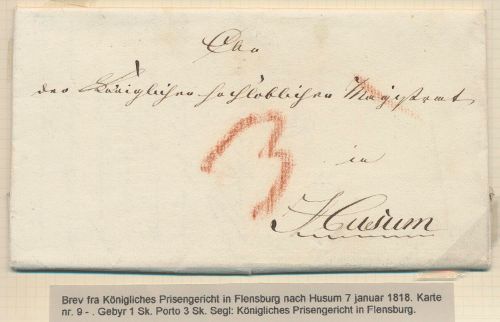 An
den Königlichen hochlöblichen Magistrat
3
in
Husum
Brev fra Königliches Prisengericht in Flensburg nach Husum 7 januar 1818. Karte
nr. 9 - . Gebyr 1 Sk. Porto 3 Sk. Segl: Königliches Prisengericht in Flensburg.